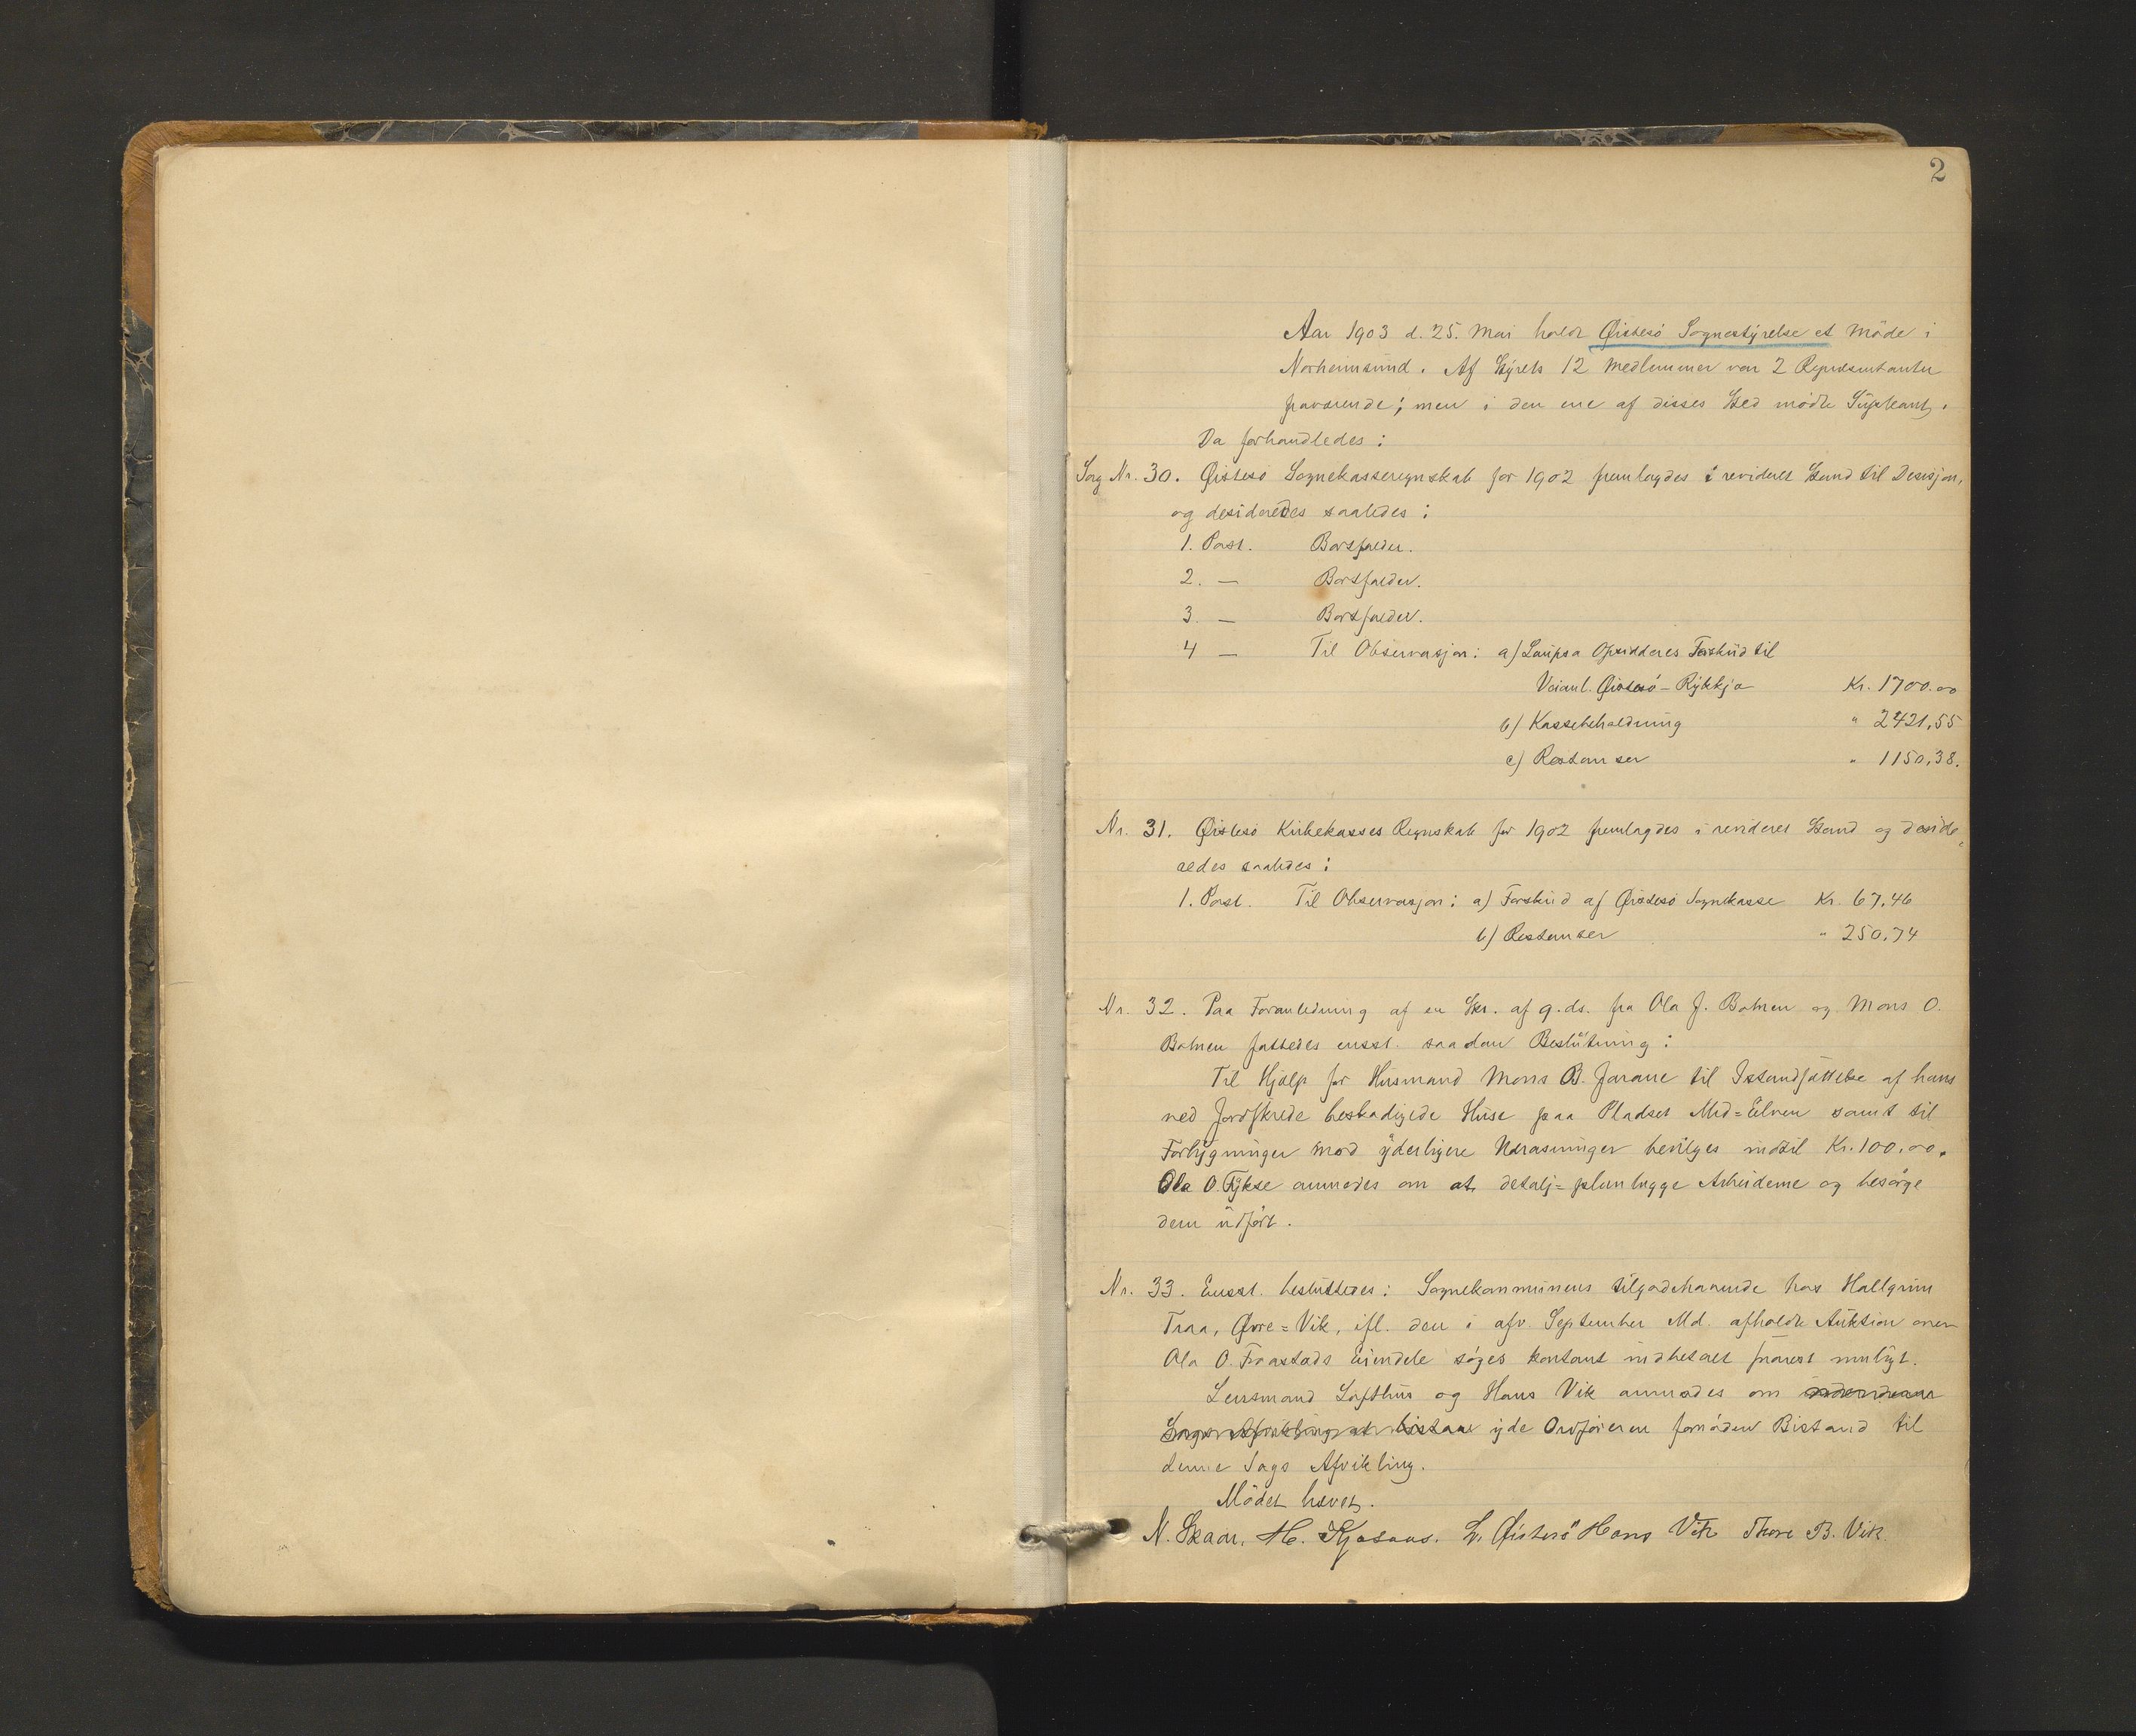 2
Aar 1903 d. 25. Mai holdt Øistesö Sognestyrelse et Möde i
Norheimsund. Af Styrets 12 Medlemmer var 2 Repræsentanter
fraværende; men i den ene af disses Sted mödte Supleant.
Da forhandledes:
Sag Nr. 30. Øistesö Sognekasseregnskab for 1902 fremlagdes i revideret Stand til Desisjon,
og desideredes saaledes:
1. Post. Bortfalder.
2. — Bortfalder.
3. — Bortfalder.
4 — Til Observasjon: a) Laupsa Opsidderes Forskud til
Veianl. Øistesö - Rykkja Kr. 1700.00
b) Kassebeholdning " 2421,55
c) Restanser " 1150,38.
Nr. 31. Øistesö Kirkekasses Regnskab for 1902 fremlagdes i revideret Stand og deside
redes saaledes:
1. Post. Til Observasjon: a) Forskud af Øistesö Sognekasse Kr. 67.46
b) Restanser " 250.74
Nr. 32. Paa Foranledning af en Skr. af 9. ds. fra Ola J. Botnen og Mons O.
Botnen fattedes enst. saadan Beslutning:
Til Hjælp for Husmand Mons B. til Istandsættelse af hans
ved Jordskrede beskadigede Huse paa Pladset Mid=Elven samt til
Forbygninger mod yderligere Udrasninger bevilges indtil Kr. 100.00.
Ola O. Tykse anmodes om at detalj=planlægge Arbeiderne og besörge
dem udfört.
Nr. 33. Eenst. besluttedes: Sognekommunens tilgodehavende hos Hallgrim
Traa, Øvre=Vik, ifl. den i afv. September Md. afholdte Auktion over
Ola O. Fraastads Eiendele söges kontant indbetalt snarest muligt.
Lensmand Lofthus og Hans Vik anmodes om
yde Ordföreren fornöden Bistand til
denne Sags Afvikling.
Mödet hævet.
N. Skaar. H. Kjosaas. L. Øistesö Hans Vik Thore B. Vik.